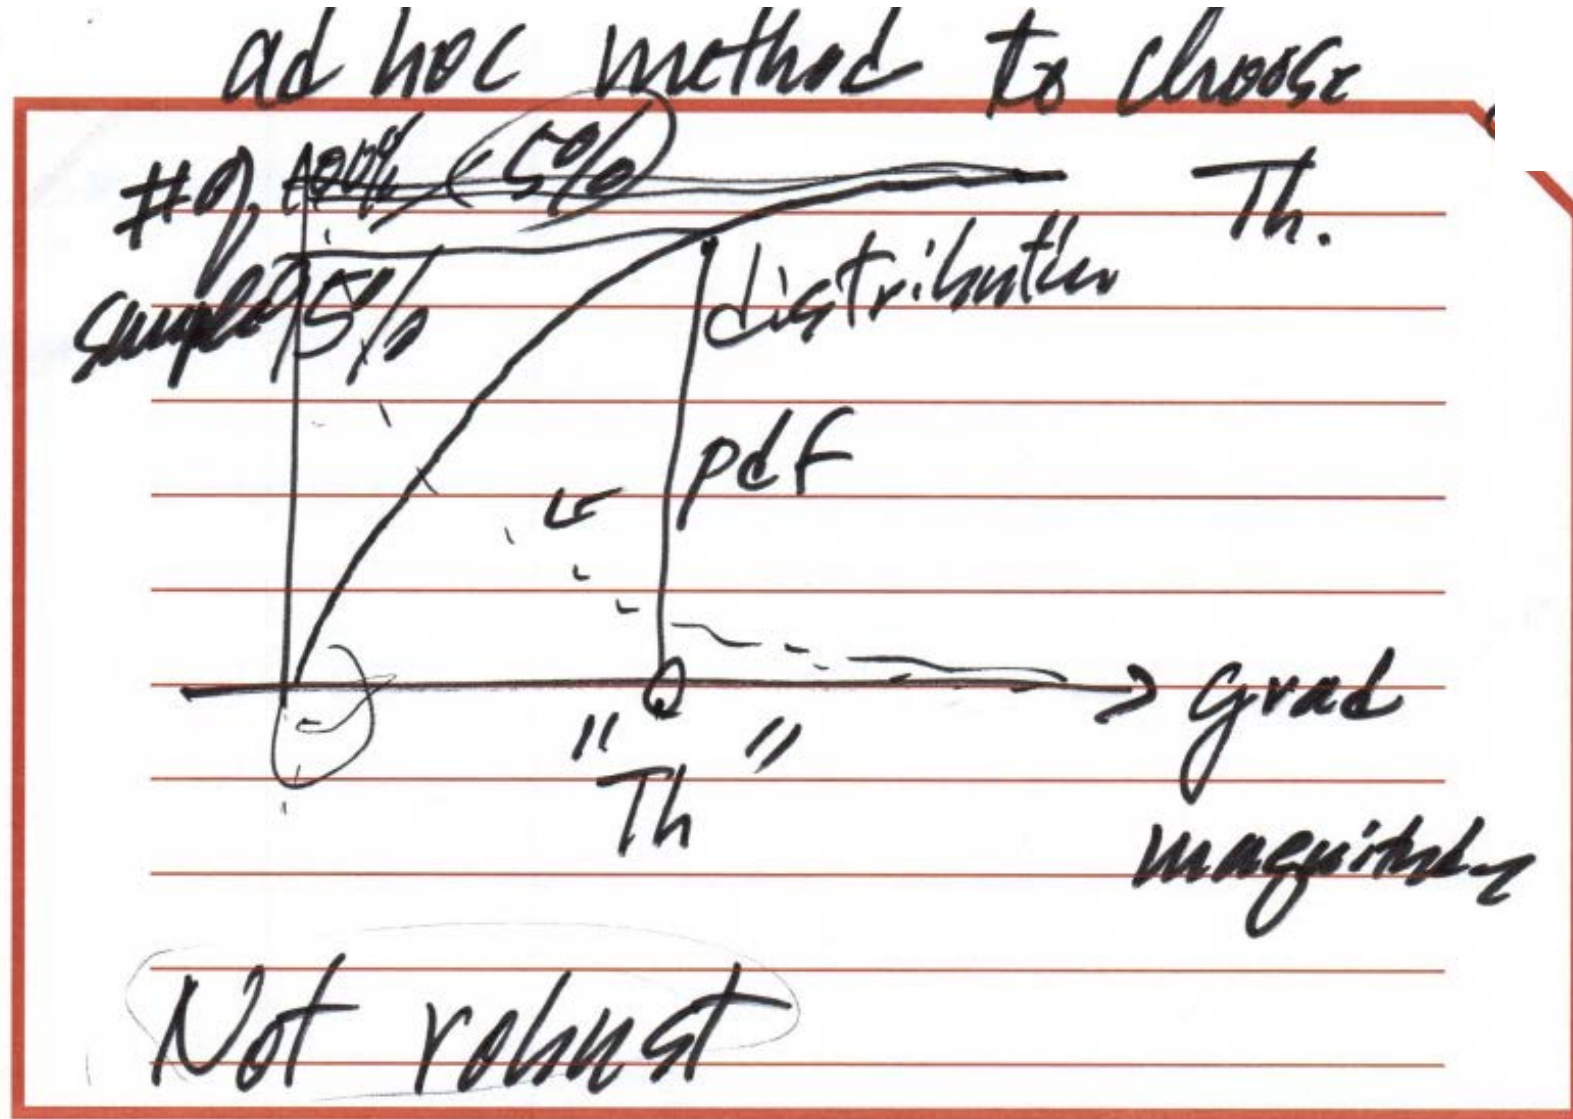 ad hoc method to choose
Th.
# of 100% (5%)
samples 95%
distribution
pdf
"Th"
grad
magnitude
Not robust